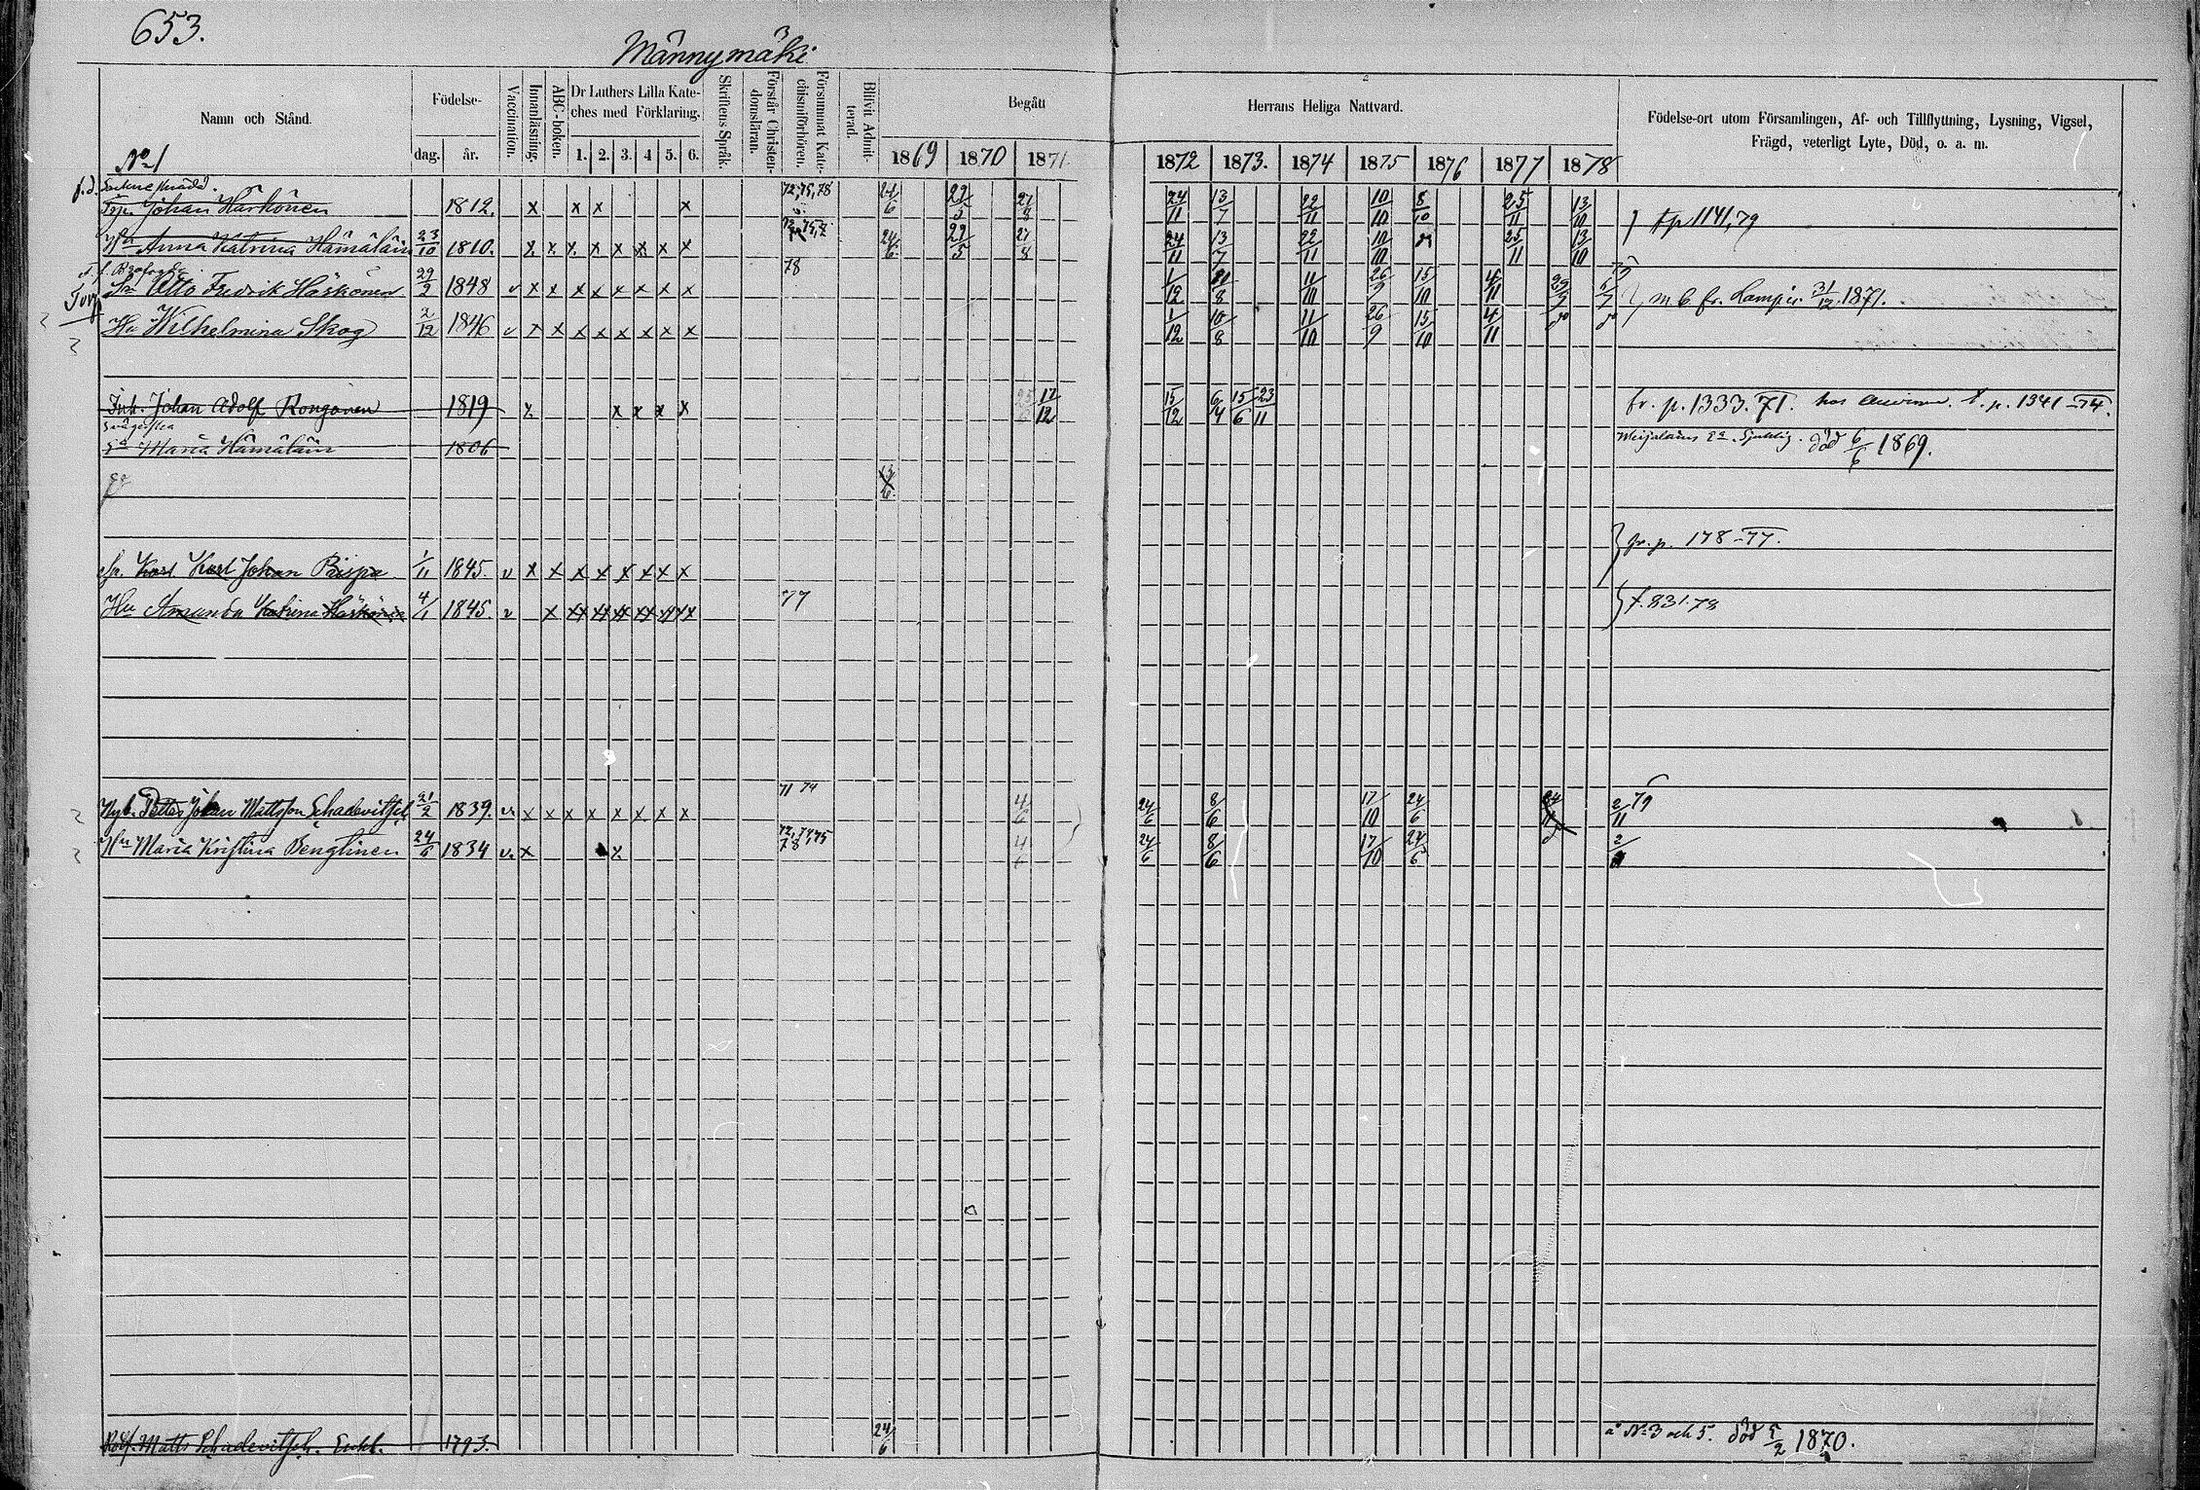 653.
Männymäki
Namn och Stånd.
Födelse-
dag. år.
Vaccination.
Innanläsning.
ABC-boken.
Dr Luthers Lilla Kate-
ches med Förklaring.
1. 2. 3. 4 5. 6.
Skriftens Språk.
Förstår Christen-
domsläran.
Försummat Kate-
chismiförhören.
Blifvit Admit-
terad.
Begått
1869 1870 1871
Herrans Heliga Nattvard.
1872 1873. 1874 1875 1876 1877 1878
Födelse-ort utom Församlingen, Af- och Tillflyttning, Lysning, Vigsel,
Frägd, veterligt Lyte, Död, o. a. m.
No 1
f. d.
Johan Härkönen 1812. x x x x 72,75,78 24/6 22/5 27/8 24/11 13/7 22/11 10/10 8/10 25/11 13/10
Hu Anna Katrina Hämäläin 23/10 1810. x x x x x x x x 24/6 22/5 27/8 24/11 13/7 22/11 10/10 25/11 13/10
} 1141,79
Torp
Sn Otto Fredrik Härkönen 29/2 1848 v x x x x x x x x 78 1/12 11/10 26/9 15/10 4/11
Hu Wilhelmina Skog 2/12 1846 v x x x x x x x x 1/12 10/8 11/10 26/9 15/10 4/11
} m b. fr. 31/12 1871.
Inh. Johan Adolf Rongonen 1819 x x x x x 17/12 15/12 6/4 15/6 23/11 fr. p. 1333. 71. p. 1341-74.
Maria Hämäläin 1806 död 6/6 1869.
} fr. p. 178-77.
Karl Johan Prispa 1/11 1845. v x x x x x x x x
Hu Amanda Katrina Härkönen 4/1 1845. v x xx xx xx xx xx x 77 } f. 831.78
Nyb. Petter Johan Mattsson Schadevitsch 21/2 1839. v x x x x x x x x 71 74 4/6 24/6 8/6 17/10 24/6 2/11 79
Hu Maria Kristina Bengtinen 24/6 1834 v. x x 72,74,75 78 4/6 24/6 8/6 17/10 24/6 2/11
Matts Schadevitsch. Enkl. 1793. 24/6 å No 3 och 5. död 5/2 1870.